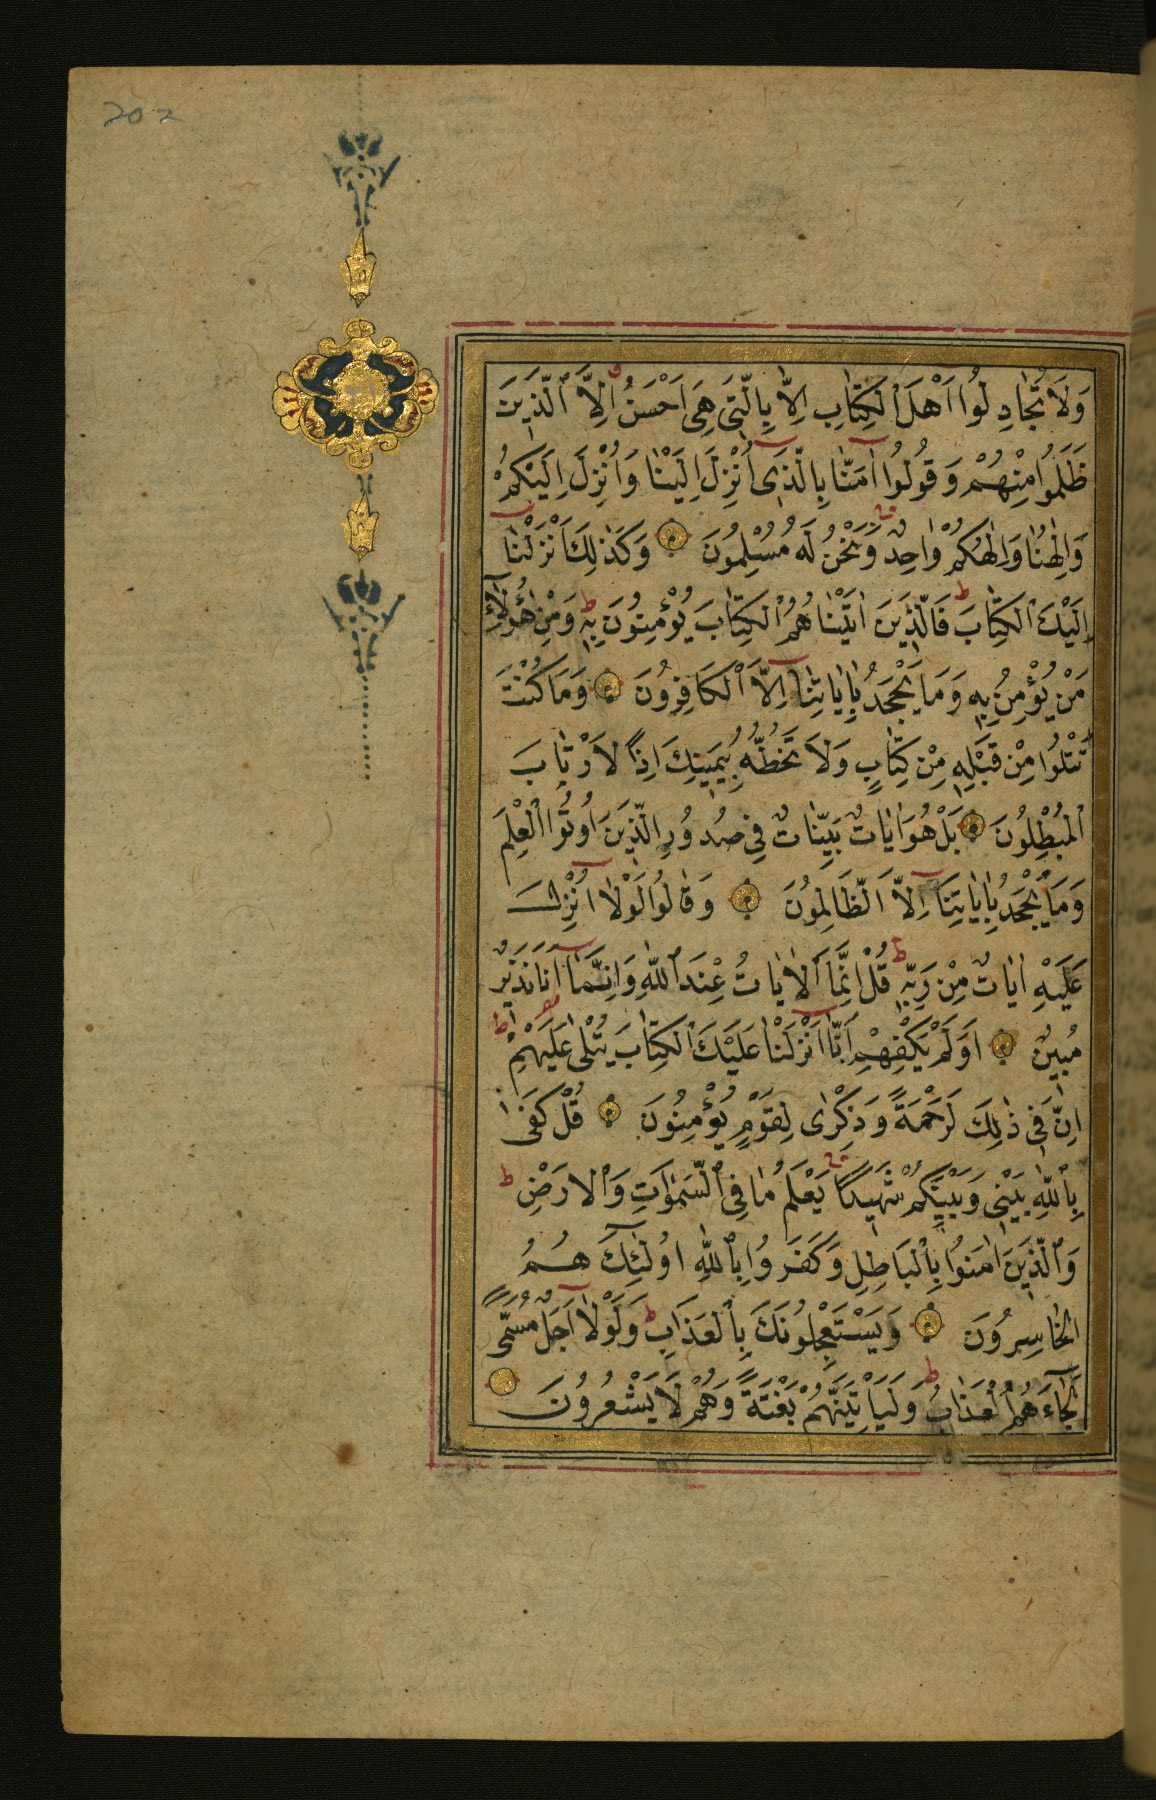 202
وَلَا تُجَادِلُوا اَهْلَ الْكِتَابِ اِلَّا بِالَّتِي هِيَ اَحْسَنُ اِلَّا الَّذِينَ
ظَلَمُوا مِنْهُمْ وَقُولُوا اٰمَنَّا بِالَّذِي اُنْزِلَ اِلَيْنَا وَاُنْزِلَ اِلَيْكُمْ
وَاِلٰهُنَا وَاِلٰهُكُمْ وَاحِدٌ وَنَحْنُ لَهُ مُسْلِمُونَ وَكَذٰلِكَ اَنْزَلْنَا
اِلَيْكَ الْكِتَابَ ط فَالَّذِينَ اٰتَيْنَاهُمُ الْكِتَابَ يُؤْمِنُونَ بِهِ ط وَمِنْ هٰؤُلَاءِ
مَنْ يُؤْمِنُ بِهِ وَمَا يَجْحَدُ بِاٰيَاتِنَا اِلَّا الْكَافِرُونَ وَمَا كُنْتَ
تَتْلُوا مِنْ قَبْلِهِ مِنْ كِتَابٍ وَلَا تَخُطُّهُ بِيَمِينِكَ اِذًا لَارْتَابَ
الْمُبْطِلُونَ بَلْ هُوَ اٰيَاتٌ بَيِّنَاتٌ فِي صُدُورِ الَّذِينَ اُوتُوا الْعِلْمَ
وَمَا يَجْحَدُ بِاٰيَاتِنَا اِلَّا الظَّالِمُونَ وَقَالُوا لَوْلَا اُنْزِلَ
عَلَيْهِ اٰيَاتٌ مِنْ رَبِّهِ ط قُلْ اِنَّمَا الْاٰيَاتُ عِنْدَ اللّٰهِ وَاِنَّمَا اَنَا نَذِيرٌ
مُبِينٌ اَوَلَمْ يَكْفِهِمْ اَنَّا اَنْزَلْنَا عَلَيْكَ الْكِتَابَ يُتْلٰى عَلَيْهِمْ ط
اِنَّ فِي ذٰلِكَ لَرَحْمَةً وَذِكْرٰى لِقَوْمٍ يُؤْمِنُونَ قُلْ كَفٰى
بِاللّٰهِ بَيْنِي وَبَيْنَكُمْ شَهِيدًا يَعْلَمُ مَا فِي السَّمٰوَاتِ وَالْارَضِ ط
وَالَّذِينَ اٰمَنُوا بِالْبَاطِلِ وَكَفَرُوا بِاللّٰهِ اُولٰئِكَ هُمُ
الْخَاسِرُونَ وَيَسْتَعْجِلُونَكَ بِالْعَذَابِ ط وَلَوْلَا اَجَلٌ مُسَمًّى
لَجَاءَهُمُ الْعَذَابُ ط وَلَيَأْتِيَنَّهُمْ بَغْتَةً وَهُمْ لَا يَشْعُرُونَ